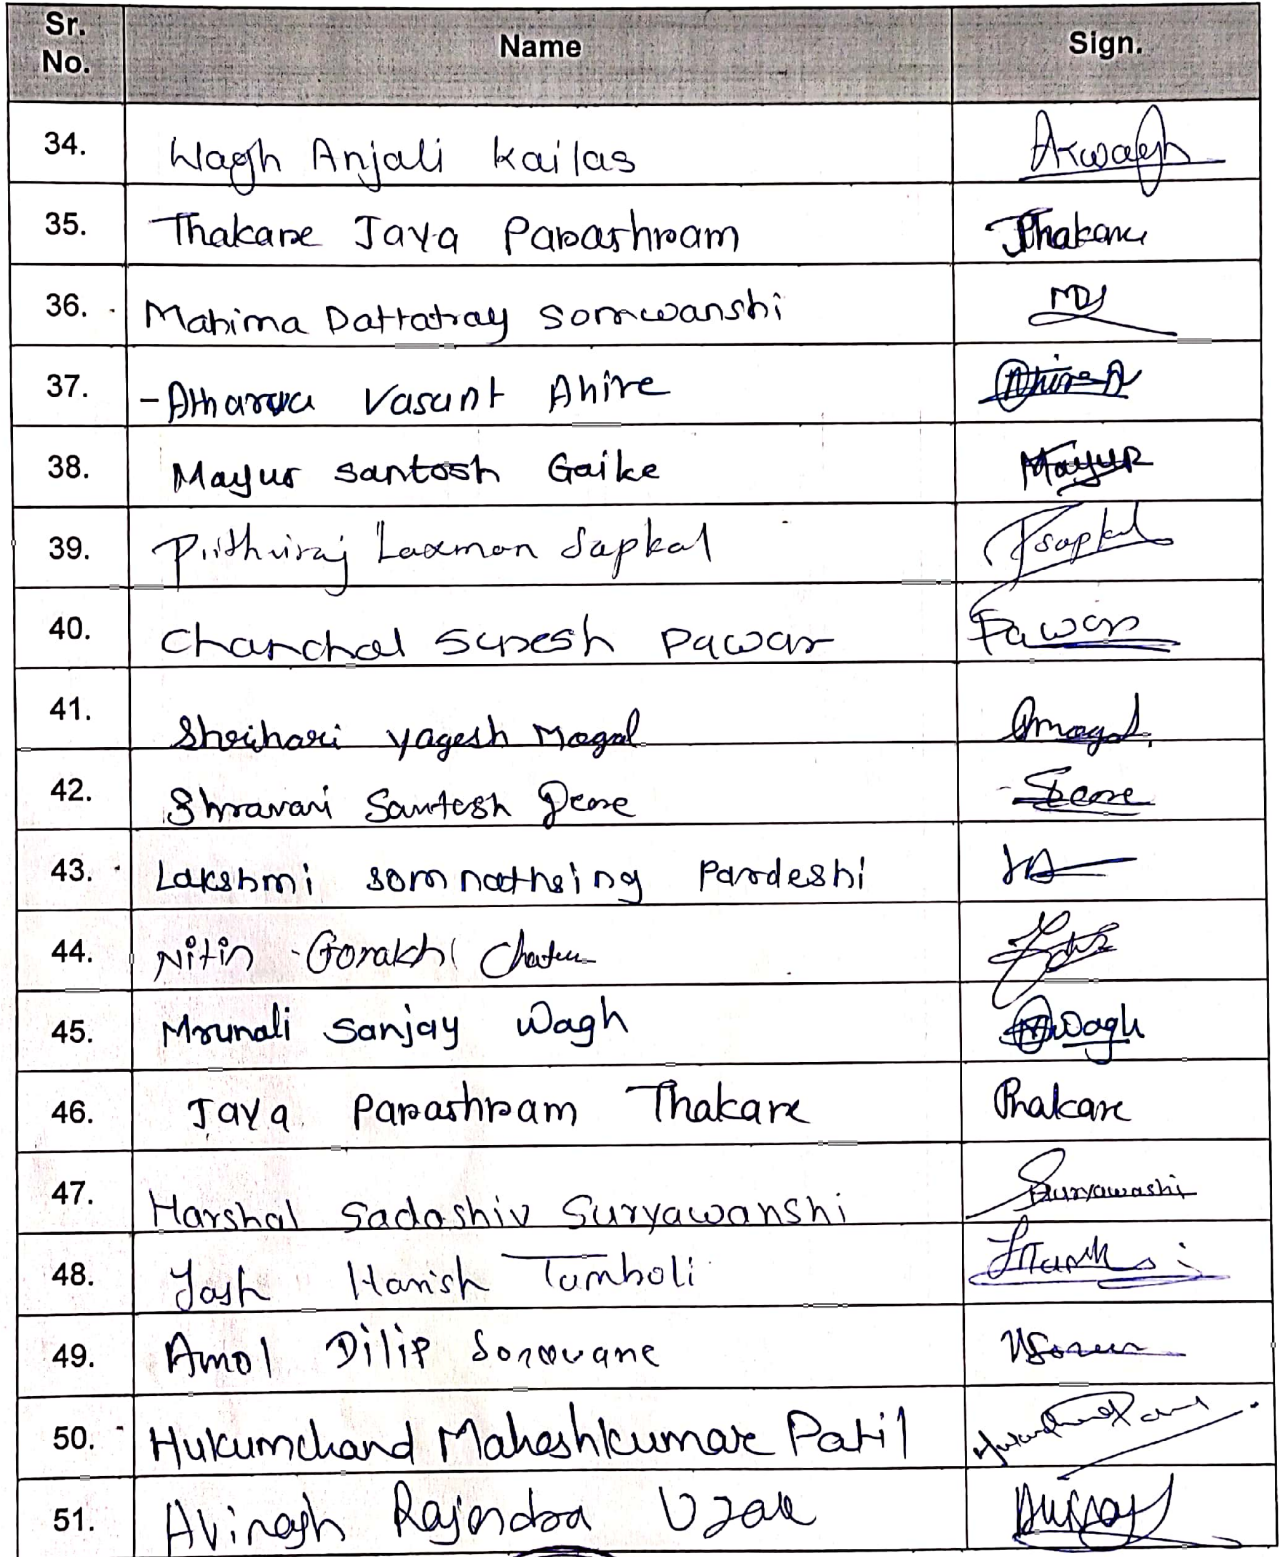 Sr. No. Name Sign.
34. Wagh Anjali Kailas AKwagh
35. Thakare Jaya Parashram JThakare
36. Mahima Dattatray Somwanshi MDS
37. Atharva Vasant Ahire Ahire A
38. Mayur Santosh Gaike Mayur
39. Prithviraj Laxman Sapkal Psapkal
40. Chanchal Suresh Pawar Pawar
41. Shrihari Yagesh Mogal
42. Shravani Santosh Deore Deore
43. Lakshmi Somnathsing Pardeshi
44. Nitin Gorakh
45. Mrunali Sanjay Wagh Wagh
46. Jaya Parashram Thakare Phakare
47. Harshal Sadashiv Suryawanshi Suryawashi
48. Yash Harish Tamboli
49. Amol Dilip Sonawane
50. Hukumchand Maheshkumar Patil
51. Avinash Rajendra